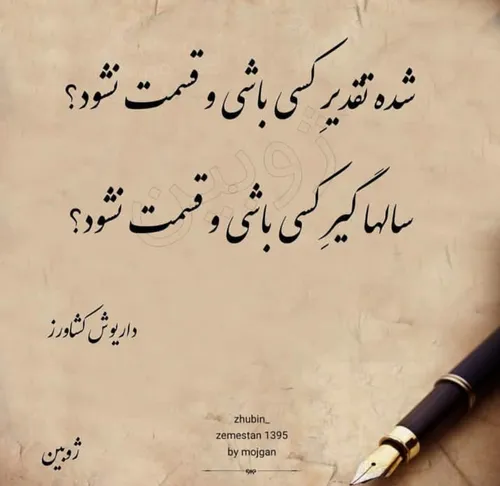 شده تقدیرِ کسی باشی و قسمت نشود؟
سالها گیرِ کسی باشی و قسمت نشود؟
داریوش کشاورز
zhubin_
zemestan 1395
by mojgan
ژوبین
ژوبین